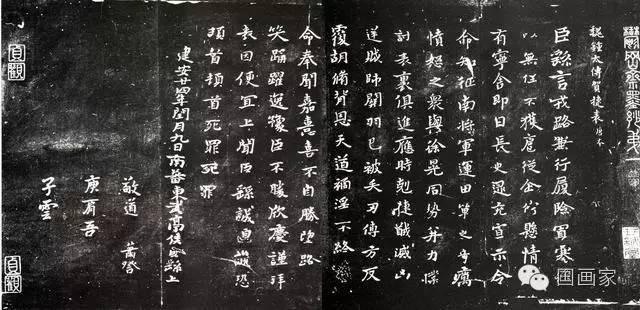 鬱岡齋墨玅第一
魏鍾太傅賀捷表唐本
臣繇言戎路兼行履險冒寒
以無任不獲扈從企佇懸情
有寧舍即日長史逯充宣示令
命知征南將軍運田單之奇厲
憤怒之衆與徐晃同勢并力撲
討表裏俱進應時剋捷馘滅凶
逆賊帥關羽已被矢刃傅方反
覆胡脩背恩天道禍淫不終
命奉聞嘉憙喜不自勝望路
笑踊躍逸豫臣不勝欣慶謹拜
表因便宜上聞臣繇誠皇誠恐
頓首頓首死罪死罪
建安廿四年閏月九日南蕃東武亭侯臣繇上
敬道
庾肩吾
子雲
貞觀
貞觀
国画家